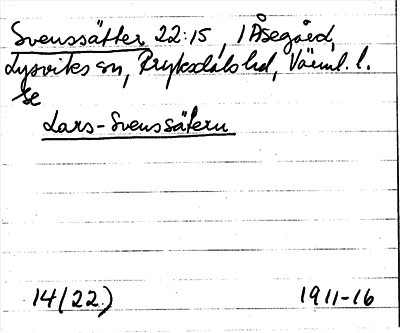 Svenssätter 22:15, i Åsegård,
Lysviks sn, Fryksdals hd, Värml. l.
se
Lars-Svenssätern
14(22)
1911-16